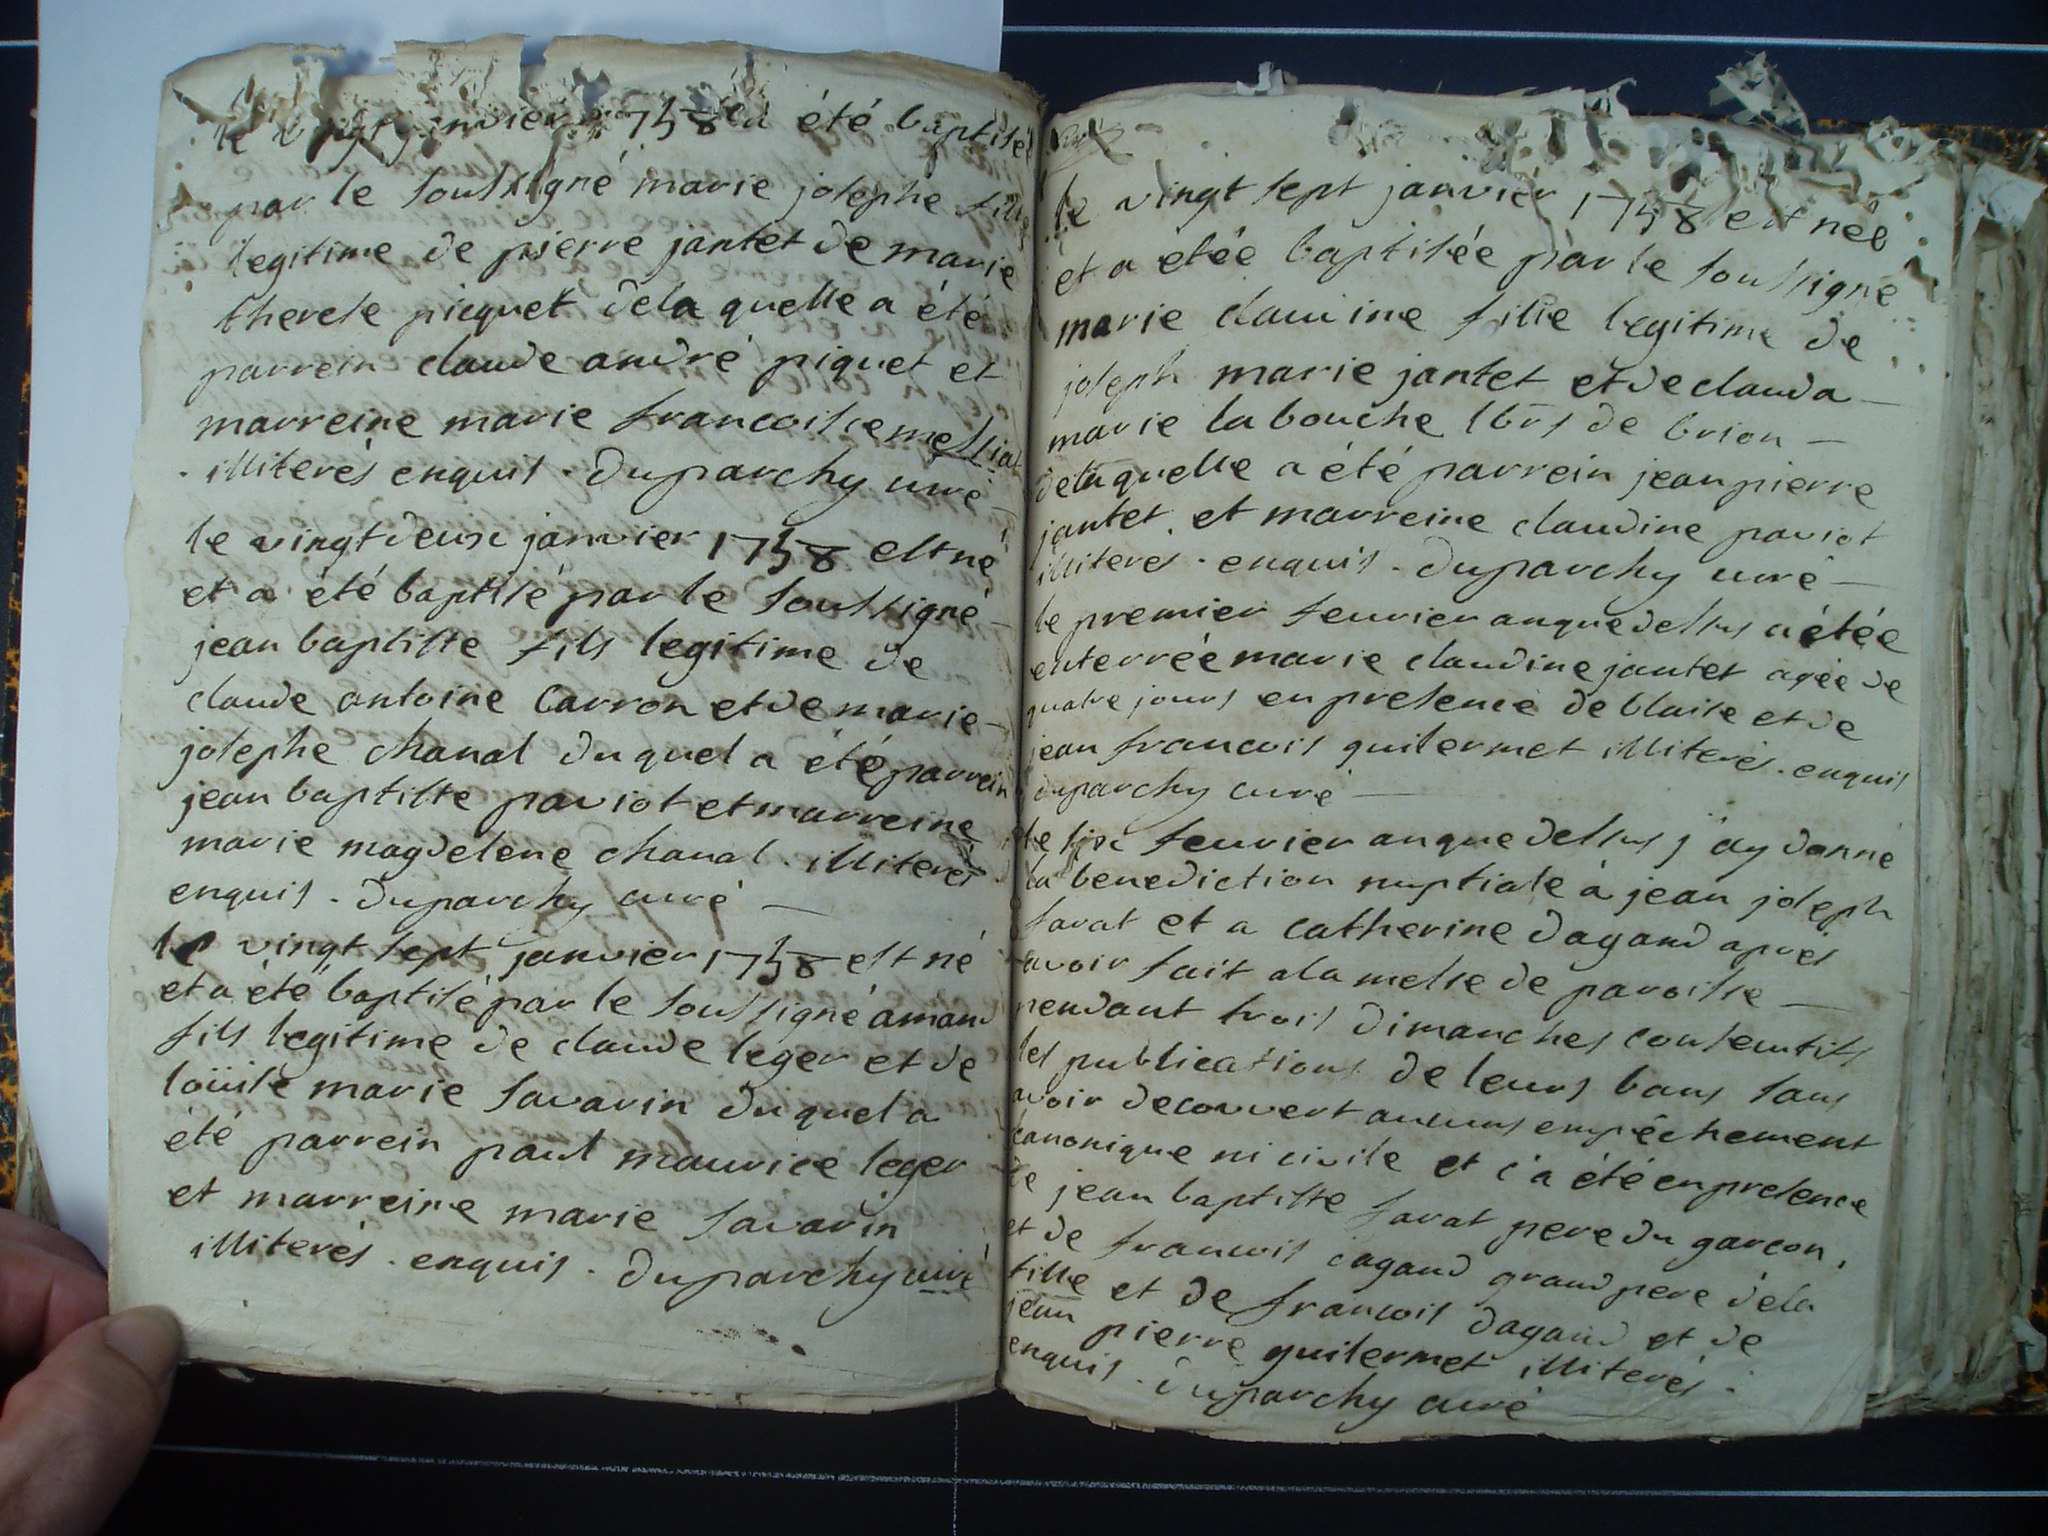 le vingt janvier 1758 a été baptisée
par le soussigné marie josephe fille
legitime de pierre jantet de marie
therese picquet de la quelle a été
parrein claude andré piquet et
marreine marie francoise messiat
illiterés enquis. Duparchy curé
le vingt deux janvier 1758 est né
et a été baptisé par le soussigné
jean baptiste fils legitime de
claude antoine carron et de marie
josephe chanal du quel a été parrein
jean baptiste paviot et marreine
marie magdelene chanal. illiterés
enquis. Duparchy curé
le vingt sept janvier 1758 est né
et a été baptisé par le soussigné amand
fils legitime de claude leger et de
loüise marie savarin du quel a
été parrein paul maurice leger
et marreine marie savarin
illiterés. enquis. Duparchy curé
le vingt sept janvier 1758 est née
et a etée baptisée par le soussigné
marie claudine fille legitime de
joseph marie jantet et de clauda
marie labouche lbrs de brion
de la quelle a été parrein jean pierre
jantet et marreine claudine paviot
illiterés. enquis. Duparchy curé
le premier feuvrier an que dessus a étée
enterrée marie claudine jantet agée de
quatre jours en presence de blaise et de
jean francois guilermet illiterés. enquis
duparchy curé
le six feuvrier an que dessus j'ay donné
la benediction nuptiale à jean joseph
savat et a catherine dagand aprés
avoir fait a la messe de paroisse
pendant trois dimanches consecutifs
les publications de leurs bans sans
avoir decouvert aucuns empêchement
canonique ni civile et c'a été en presence
de jean baptiste savat pere du garcon,
et de francois dagand grand pere de la
fille et de francois dagand et de
jean pierre guilermet illiterés.
enquis. Duparchy curé